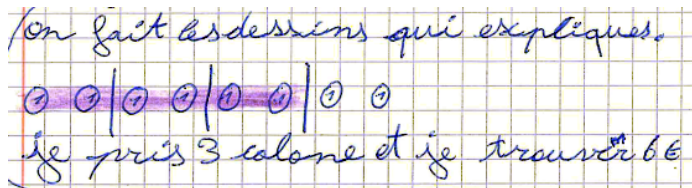 on fait les dessins qui expliques.
1 1 1 1 1 1 1 1
je pris 3 colone et je trouver 6 €